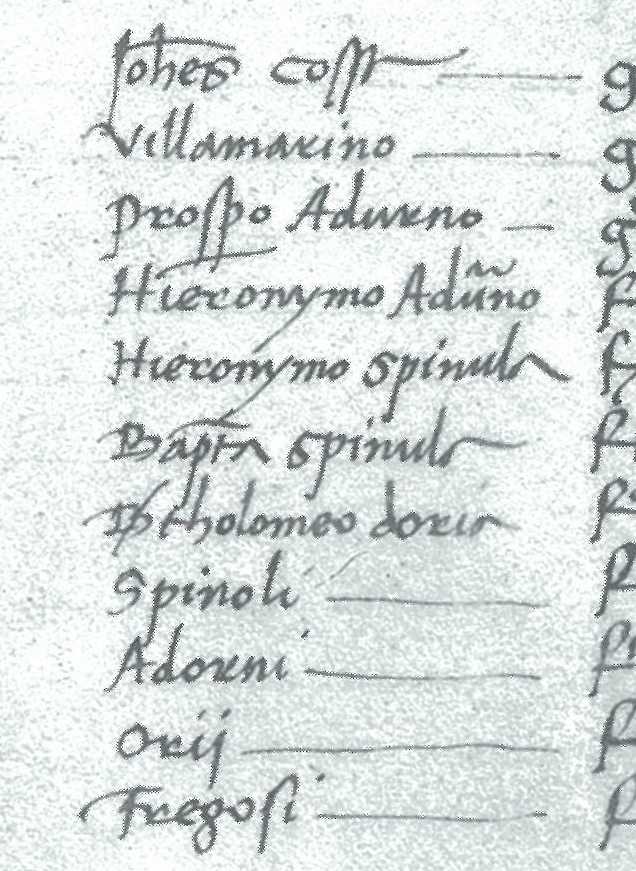 Joħes Coss
Villamarino
Prospo Adurno
Hieronymo Adūno
Hieronymo Spinula
Bapta Spinula
Bartholomeo doria
Spinoli
Adorni
Orij
Fregosi